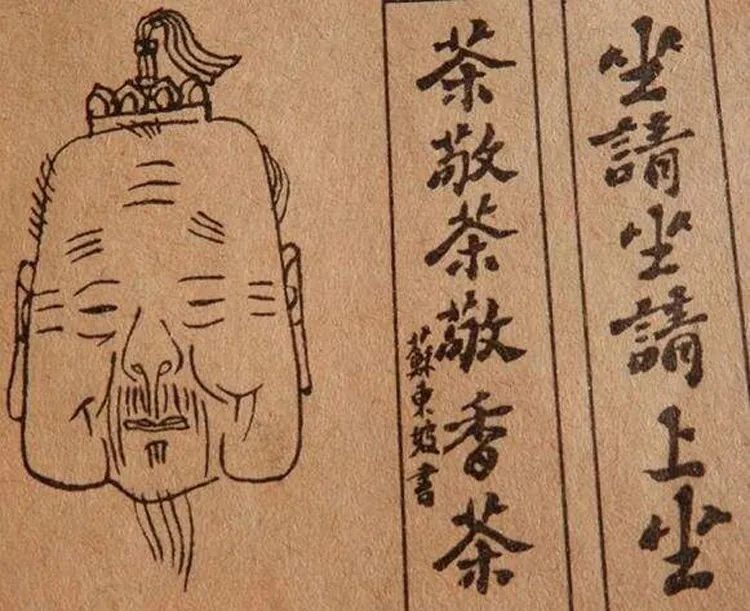 坐請坐請上坐
茶敬茶敬香茶
蘇東坡書